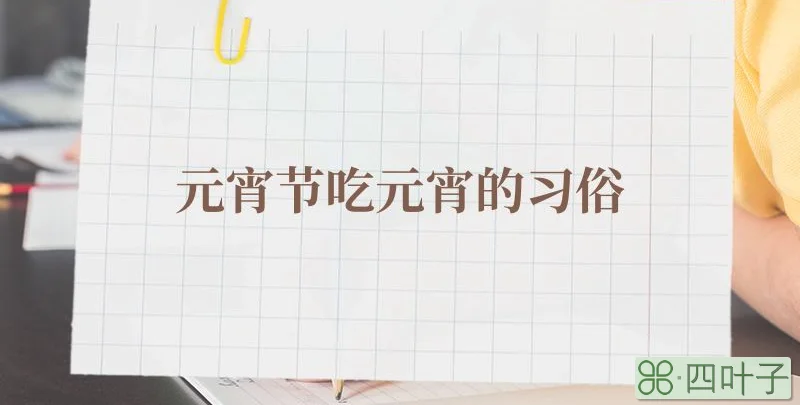 元宵节吃元宵的习俗
四叶子